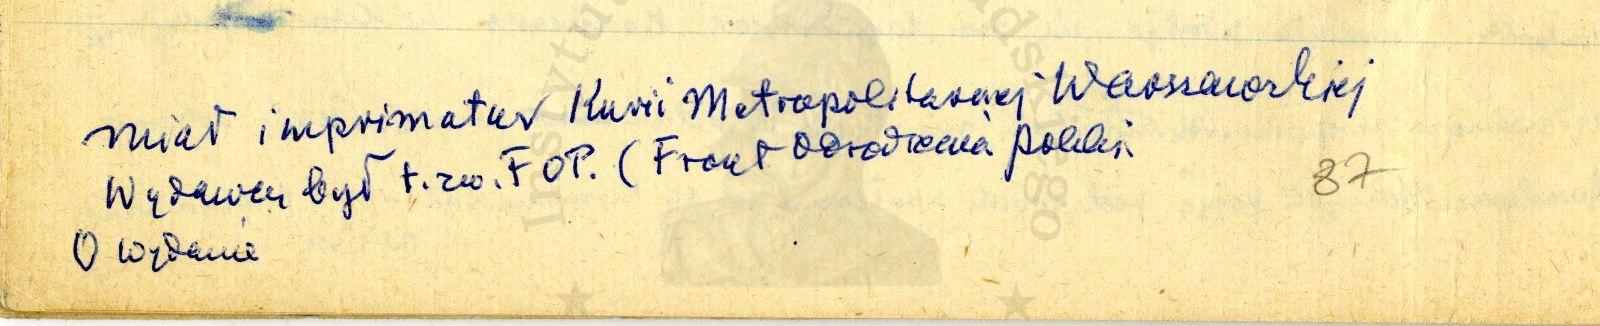 miał imprimatur Kurii Metropolitarnej Warszawskiej
Wydawcą był t.zw. FOP. (Front Odrodzenia Polski
87
O wydanie